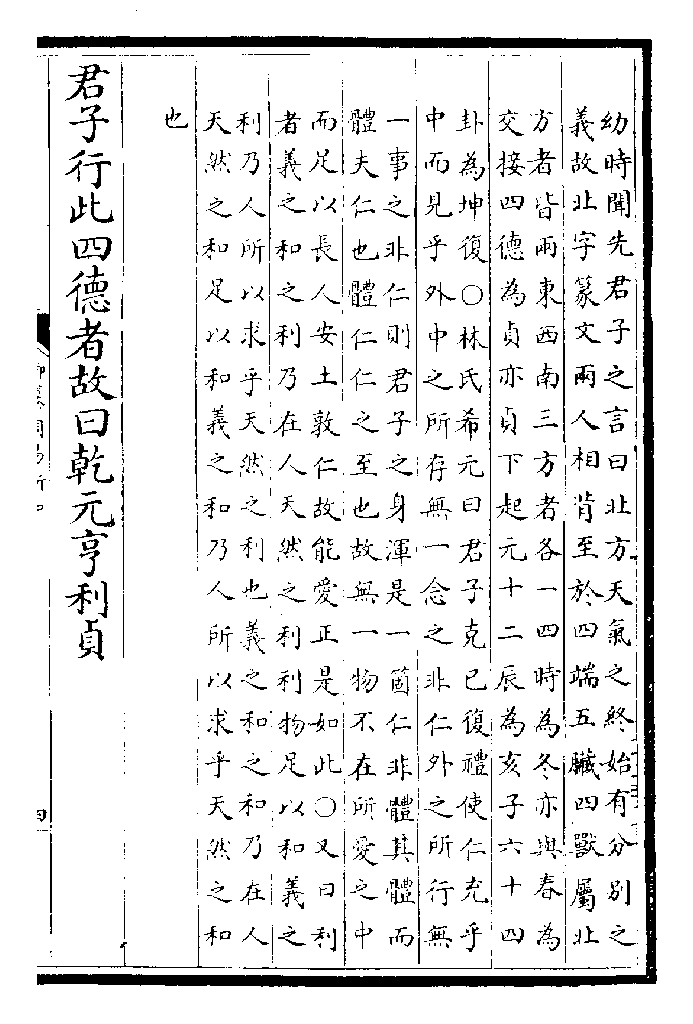 幼時聞先君子之言曰北方天氣之終始有分别之
義故北字篆文兩人相背至於四端五臟四獸屬北
方者皆兩東西南三方者各一四時為冬亦與春為
交接四德為貞亦貞下起元十二辰為亥子六十四
卦為坤復○林氏希元曰君子克已復禮使仁充乎
中而見乎外中之所存無一念之非仁外之所行無
一事之非仁則君子之身渾是一箇仁非體其體而
體夫仁也體仁仁之至也故無一物不在所愛之中
而足以長人安土敦仁故能愛正是如此○又曰利
者義之和之利乃在人天然之利利物足以和義之
利乃人所以求乎天然之利也義之和之和乃在人
天然之和足以和義之和乃人所以求乎天然之和
也
君子行此四德者故曰乾元亨利貞